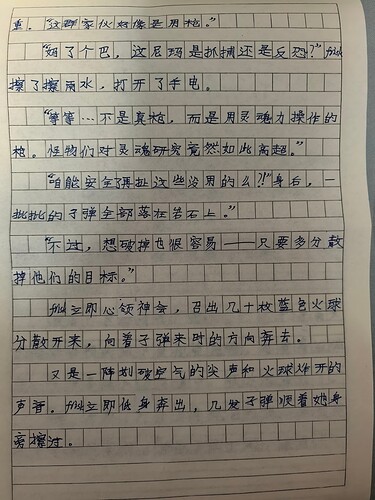 重。“这群家伙好像是用枪。”
“妈了个巴，这尼玛是抓捕还是反恐？”她
擦了擦雨水，打开了手电。
“等等…不是真枪，而是用灵魂力操作的
枪。怪物们对灵魂研究竟然如此高超。”
“咱能安全了再扯这些没用的么？！”身后，一
批批的子弹全部落在岩石上。”
“不过，想破掉也很容易——只要多分散
掉他们的目标。”
她立即心领神会，召出几十枚蓝色火球
分散开来，向着子弹来时的方向奔去。
又是一阵划破空气的尖声和火球炸开的
声音。她立即低身奔出，几发子弹顺着她身
旁擦过。